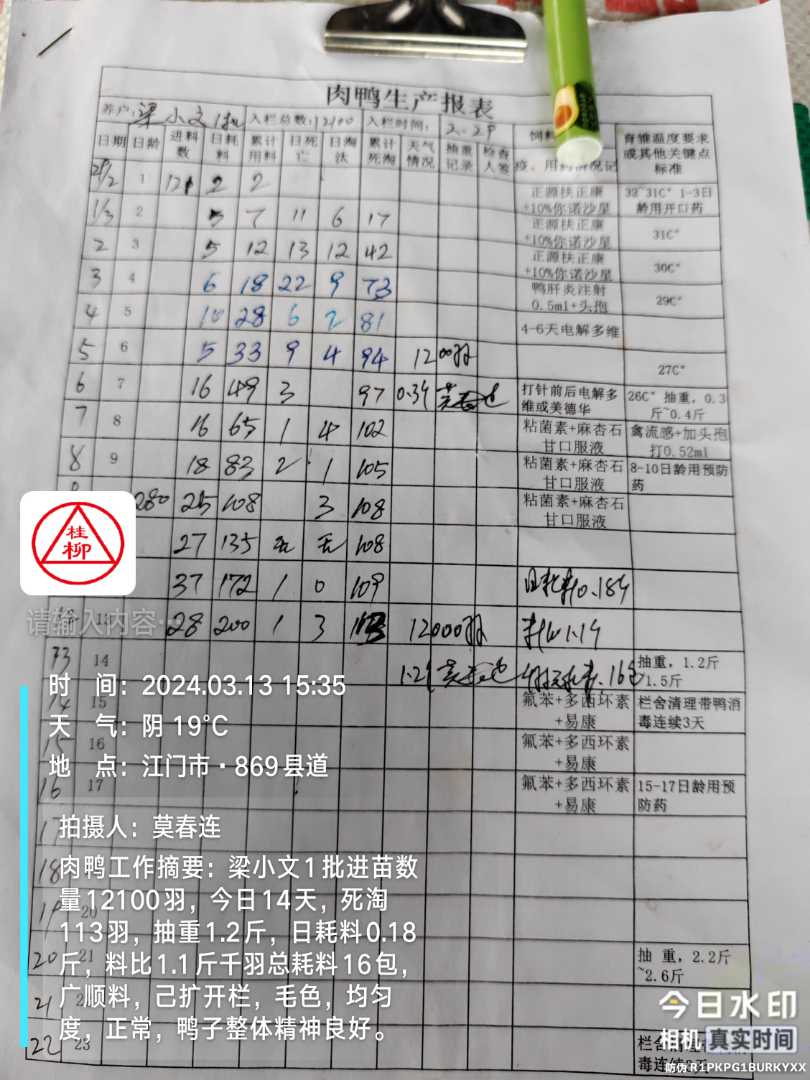 肉鸭生产报表
养户:梁小文1批 入栏总数:12100 入栏时间: 2.29
日期 日龄 进料数 日耗料 累计用料 日死亡 日淘汰 累计死淘 天气情况 抽重记录 检查人签 育雏温度要求或其他关键点标准
29/2 1 121 2 2 正源扶正康+10%你诺沙星 32~31C° 1-3日龄用开口药
1/3 2 5 7 11 6 17 正源扶正康+10%你诺沙星 31C°
2 3 5 12 13 12 42 正源扶正康+10%你诺沙星 30C°
3 4 6 18 22 9 73 鸭肝炎注射0.5ml+头孢 29C°
4 5 10 28 6 2 81 4-6天电解多维
5 6 5 33 9 4 94 1200羽 27C°
6 7 16 49 3 97 0.34 打针前后电解多维或美德华 26C° 抽重,0.3斤~0.4斤
7 8 16 65 1 4 102 粘菌素+麻杏石甘口服液 禽流感+加头孢打0.52ml
8 9 18 83 2 1 105 粘菌素+麻杏石甘口服液 8-10日龄用预防药
280 25 108 3 108 粘菌素+麻杏石甘口服液
27 135 无 无 108
37 172 1 0 109 日耗料0.184
13 28 200 1 3 113 12000羽 料比1.14
13 14 抽重,1.2斤~1.5斤
14 15 氟苯+多西环素+易康 栏舍清理带鸭消毒连续3天
15 16 氟苯+多西环素+易康
16 17 氟苯+多西环素+易康 15-17日龄用预防药
17
18
19 20
20 21 抽重,2.2斤~2.6斤
21
22 23
桂柳
请输入内容
时 间:2024.03.13 15:35
天 气:阴 19℃
地 点:江门市·869县道
拍摄人:莫春连
肉鸭工作摘要:梁小文1批进苗数
量12100羽,今日14天,死淘
113羽,抽重1.2斤,日耗料0.18
斤,料比1.1斤千羽总耗料16包,
广顺料,己扩开栏,毛色,均匀
度,正常,鸭子整体精神良好。
今日水印
相机 真实时间
防伪 R1PKPG1BURKYXX